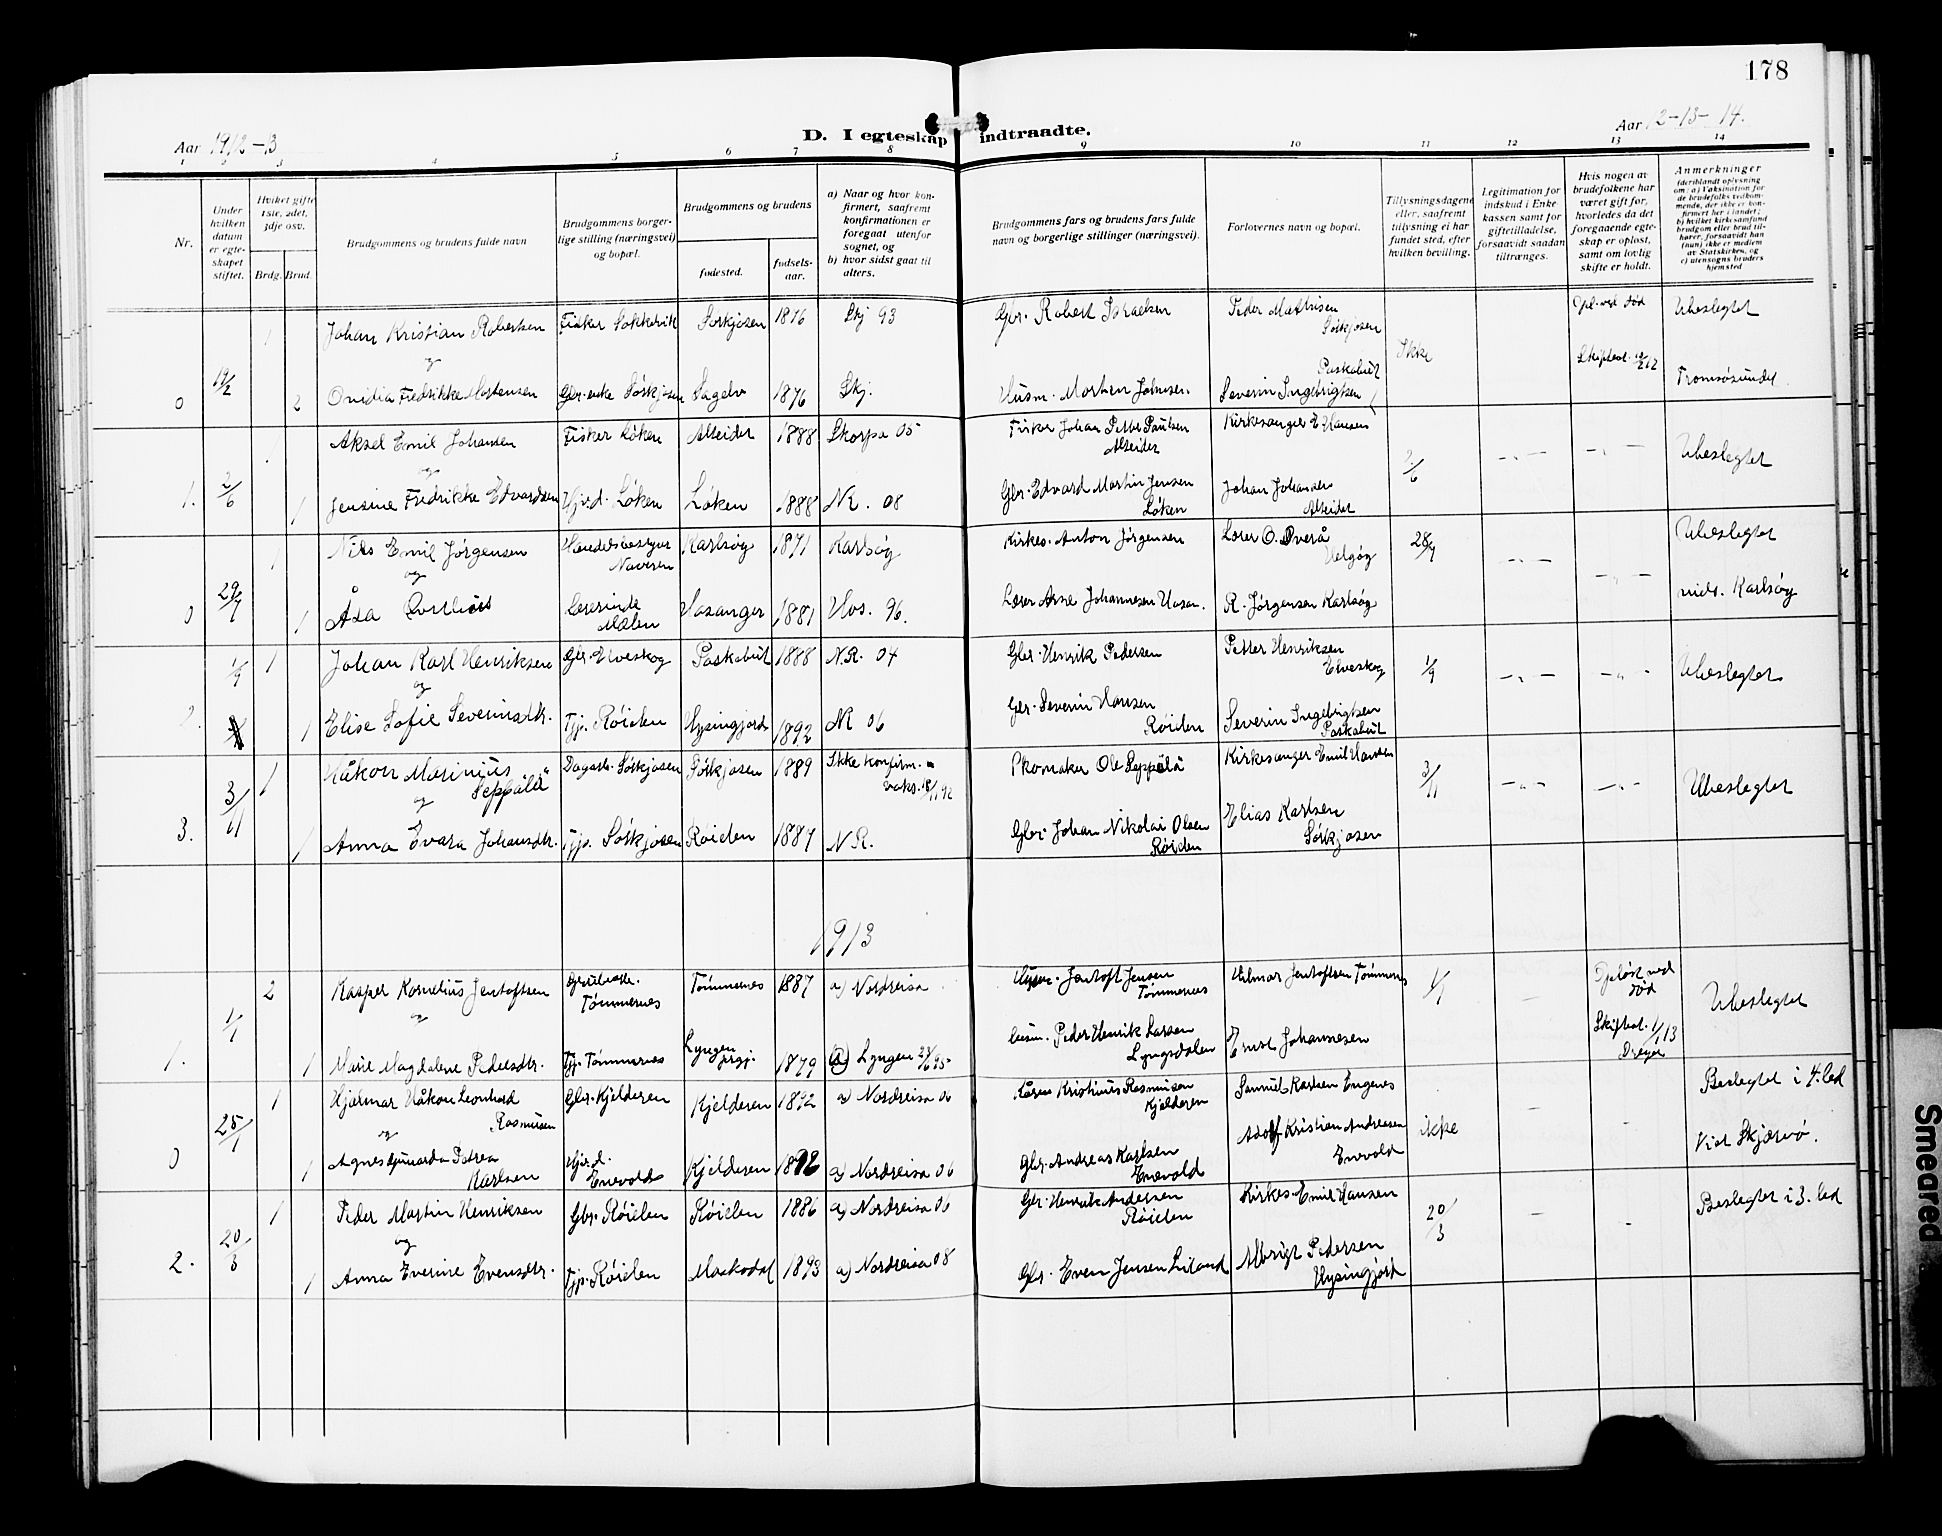 178
Aar 1912-13
D. I egteskap indtraadte.
Aar 12-13-14.
1 2 3 4 5 6 7 8 9 10 11 12 13 14
Nr.
Under hvilken datum er egteskapet stiftet.
Hvilket gifte 1ste, 2det, 3dje osv.
Brdg. Brud.
Brudgommens og brudens fulde navn
Brudgommens borgerlige stilling (næringsvei) og bopæl.
Brudgommens og brudens
fødested.
fødselsaar.
a) Naar og hvor konfirmert, saafremt konfirmationen er foregaat utenfor sognet, og
b) hvor sidst gaat til alters.
Brudgommens fars og brudens fars fulde navn og borgerlige stillinger (næringsvei).
Forlovernes navn og bopæl.
Tillysningsdagene eller, saafremt tillysning ei har fundet sted, efter hvilken bevilling.
Legitimation for indskud i Enkekassen samt for giftetilladelse, forsaavidt saadan tiltrænges.
Hvis nogen av brudefolkene har været gift før, hvorledes da det foregaaende egteskap er opløst, samt om lovlig skifte er holdt.
Anmerkninger (deriblandt oplysning om: a) Vaksination for de brudefolks vedkommende, der ikke er konfirmert her i landet; b) hvilket kirkesamfund brudgom eller brud tilhører, forsaavidt han (hun) ikke er medlem av Statskirken, og c) utensogns bruders hjemsted
1 Johan Kristian Robertsen Fisker Sokkelvik Sørkjosen 1876 Skj 93 Gbr. Robert Israelsen Peder Mathisen Sørkjosen Opl. ved død Ubeslegtet
og
0 19/2 2 Ovidia Fredrikke Mortensen Gbr. enke Sørkjosen Sagelv 1876 Skj. Husm. Morten Johnsen Paskabut Severin Ingebrigtsen Ikke Skifteat. Tromsøsundet
1 Aksel Emil Johansen Fisker Løken Alteidet 1888 Skorpa 05 Fisker Johan Petter Paulsen Alteidet Kirkesanger E Hansen Ubeslegtet
og
1. 2/6 1 Jensine Fredrikke Edvardsen Hj.v.d. Løken Løken 1888 NR. 08 Gbr. Edvard Martin Jensen Løken Johan Johansen Alteidet 2/6 -"- -"-
1 Nils Emil Jørgensen Handelsbestyrer Karlsøy 1871 Karlsøy Kirkes. Anton Jørgensen Lærer O. Øverå Helgøy 28/7 Ubeslegtet
og
0 29/7 1 Åsa Lærerinde Hosanger 1881 Hos. 96. Lærer Arne Johannesen R. Jørgensen Karlsøy -"- -"- Karlsøy
1/9 1 Johan Karl Henriksen Gbr. Elveskog Paskabut 1888 N.R. 04 Gbr. Henrik Pedersen Petter Henriksen Elveskog 1/9 -"- -"- Ubeslegtet
og
2. 1 Elise Sofie Severinsdtr. Tjp. Røielen Hysingjord 1892 NR 06 Gbr. Severin Hansen Røielen Severin Ingebrigtsen Paskabut
1 Håkon Marinius Seppälä Dagarb. Sørkjosen Sørkjosen 1889 Ikke konfirm. vaks. Skomaker Ole Seppälä Kirkesanger Emil Hansen 3/11 -"- -"- Ubeslegtet
og
3. 3/11 1 Anna Evara Johansdtr. Tjp. Sørkjosen Røielen 1887 N.R. Gbr. Johan Nikolai Olsen Røielen Elias Karlsen Sørkjosen
1913
2 Kasper Kornelius Jentoftsen Tømmernes Tømmernes 1887 a) Nordreisa Husm. Jentoft Jensen Tømmernes Hilmar Jentoftsen Tømmernes 1/1 Opløst ved død Ubeslegtet
og
1. 1/1 1 Marie Magdalene Pedersdtr. Tjp. Tømmernes Lyngen prgj. 1879 a) Lyngen 95 Husm. Peder Henrik Larsen Lyngsdalen Ernst Johannesen Skifteat. 1/1 13 Dreyer
1 Hjalmar Håkon Leonhard Rasmusen Gbr. Kjelderen Kjelderen 1892 a) Nordreisa 06 Kristinus Rasmusen Kjelderen Samuel Karlsen Engenes Beslegtet i 4. led
og
0 25/1 1 Agnes Gunarda Petrea Karlsen Hj.v.d. Enevold Kjelderen 1892 a) Nordreisa 06 Gbr. Andreas Karlsen Enevold Adolf Kristian Andreasen Enevold ikke Viet Skjærvø.
1 Peder Martin Henriksen Gbr. Røielen Røielen 1886 a) Nordreisa 06 Gbr. Henrik Andersen Røielen Kirkes. Emil Hansen 20/3 Beslegtet i 3. led
og
2. 20/3 1 Anna Everine Evensdtr. Tjp. Røielen Maskodal 1893 a) Nordreisa 08 Gbr. Even Jensen Liland Albrigt Pedersen Hysingjord
Smeared